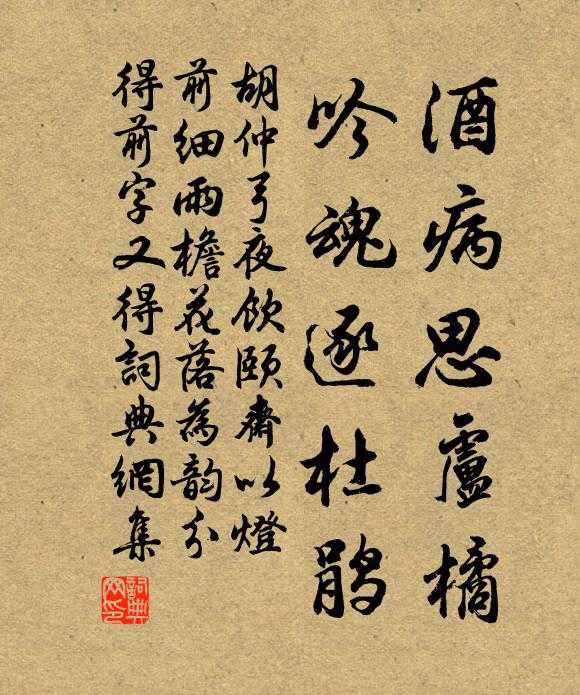 酒病思盧橘
吟魂逐杜鹃
胡仲弓夜飲頤齋以燈
前細雨檐花落為韵分
得前字又得詞典網集
詞典网印